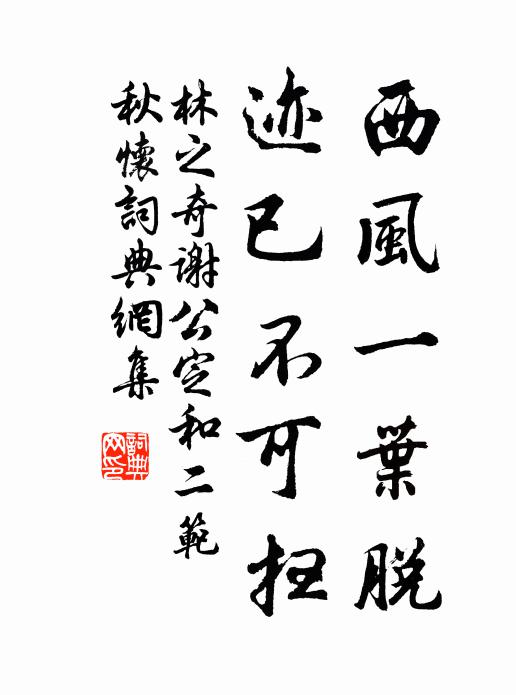 西風一葉脫
迹已不可扫
林之奇謝公定和二範
秋懷詞典網集
詞典网印